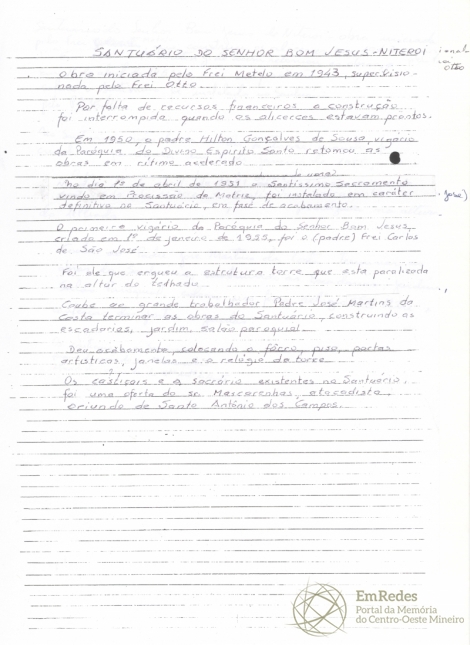 SANTUÁRIO DO SENHOR BOM JESUS - NITEROI
Obra iniciada pelo Frei Metelo em 1943, supervisio-
nada pelo Frei Otto
Por falta de recursos financeiros a construção
foi interrompida quando os alicerces estavam prontos.
Em 1950, o padre Hilton Gonçalves de Sousa, vigário
da Paróquia do Divino Espirito Santo retomou as
obras em ritimo acelerado
No dia 1º de abril de 1951 o Santíssimo Sacramento
vindo em Procissão da Matriz, foi instalado em caráter
definitivo no Santuário, em fase de acabamento.
O primeiro vigário da Paróquia do Senhor Bom Jesus,
criada em 1º de janeiro de foi o (padre) Frei Carlos
de São José
Foi ele que ergueu a estrutura torre que esta paralizada
na altura do telhado
Coube ao grande trabalhador Padre José Martins da
Costa terminar as obras do Santuário, construindo as
escadarias, jardim salão paroquial
Deu acabamento, colocando o fôrro, piso, portas
artísticas, janelas e o relógio da torre
Os castiçais e o sacrário existentes no Santuario,
foi uma oferta do sr. Mascarenhas, atacadista
oriundo de Santo Antônio dos Campos.
Otto
José)
EmRedes
Portal da Memória
do Centro-Oeste Mineiro